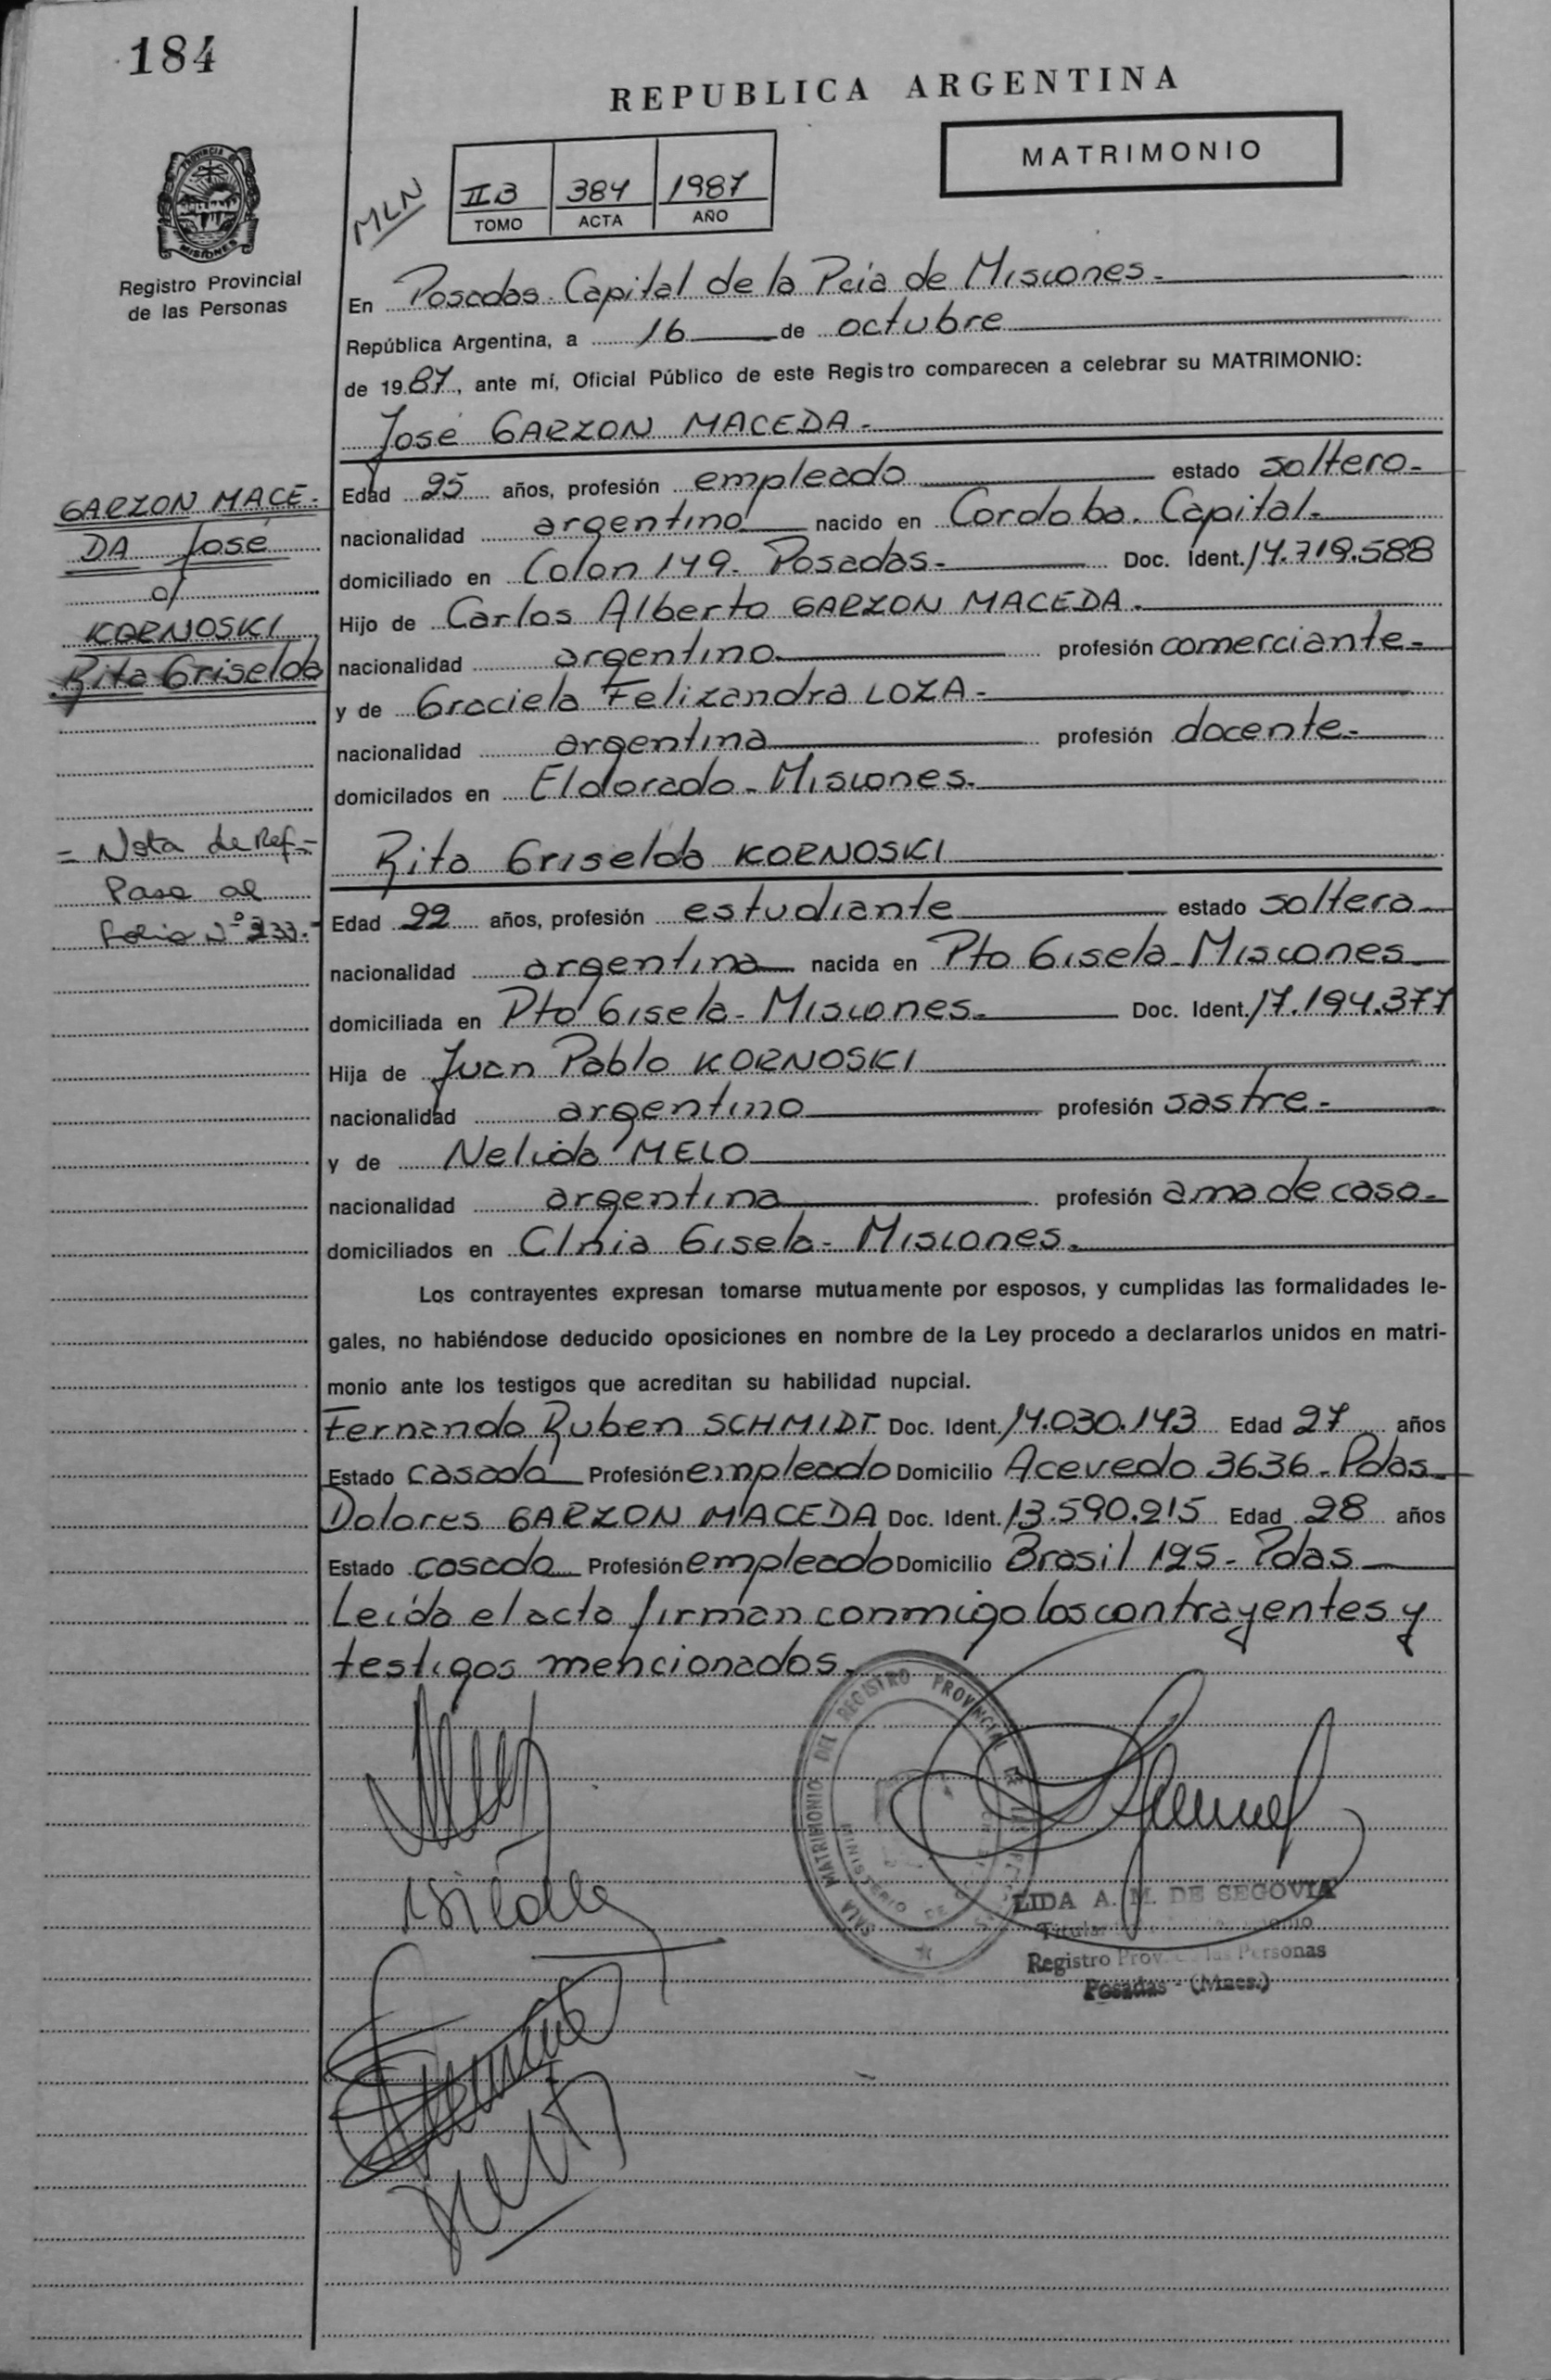 184
REPUBLICA ARGENTINA
MATRIMONIO
PROVINCIA DE
MISIONES
Registro Provincial
de las Personas
MLN
II B 384 1987
TOMO ACTA AÑO
En Posadas. Capital de la Pcia de Misiones.
República Argentina, a 16 de octubre
de 1987, ante mí, Oficial Público de este Registro comparecen a celebrar su MATRIMONIO:
José GARZON MACEDA.
Edad 25 años, profesión empleado estado soltero
nacionalidad argentino nacido en Cordoba. Capital.
domiciliado en Colon 149. Posadas. Doc. Ident. 14.719.588
Hijo de Carlos Alberto GARZON MACEDA.
nacionalidad argentino profesión comerciante
y de Graciela Felizandra LOZA
nacionalidad argentina profesión docente
domicilados en Eldorado - Misiones.
GARZON MACE-
DA José
c/
KORNOSKI
Rita Griselda
= Nota de Ref.=
Pasa al
Folio Nº 233.-
Rita Griselda KORNOSKI
Edad 22 años, profesión estudiante estado soltera
nacionalidad argentina nacida en Pto Gisela - Misiones
domiciliada en Pto Gisela - Misiones. Doc. Ident. 17.194.377
Hija de Juan Pablo KORNOSKI
nacionalidad argentino profesión sastre
y de Nelida MELO
nacionalidad argentina profesión ama de casa
domiciliados en Clnia Gisela - Misiones.
Los contrayentes expresan tomarse mutuamente por esposos, y cumplidas las formalidades le-
gales, no habiéndose deducido oposiciones en nombre de la Ley procedo a declararlos unidos en matri-
monio ante los testigos que acreditan su habilidad nupcial.
Fernando Ruben SCHMIDT Doc. Ident. 14.030.143 Edad 27 años
Estado casado Profesión empleado Domicilio Acevedo 3636 - Pdas
Dolores GARZON MACEDA Doc. Ident. 13.590.215 Edad 28 años
Estado casada Profesión empleado Domicilio Brasil 125 - Pdas
Leida el acta firman conmigo los contrayentes y
testigos mencionados.
SALA MATRIMONIO DEL REGISTRO PROVINCIAL DE LAS
MINISTERIO DE
LIDA A. M. DE SEGOVIA
Titular
Registro Prov. las Personas
Posadas - (Mnes.)